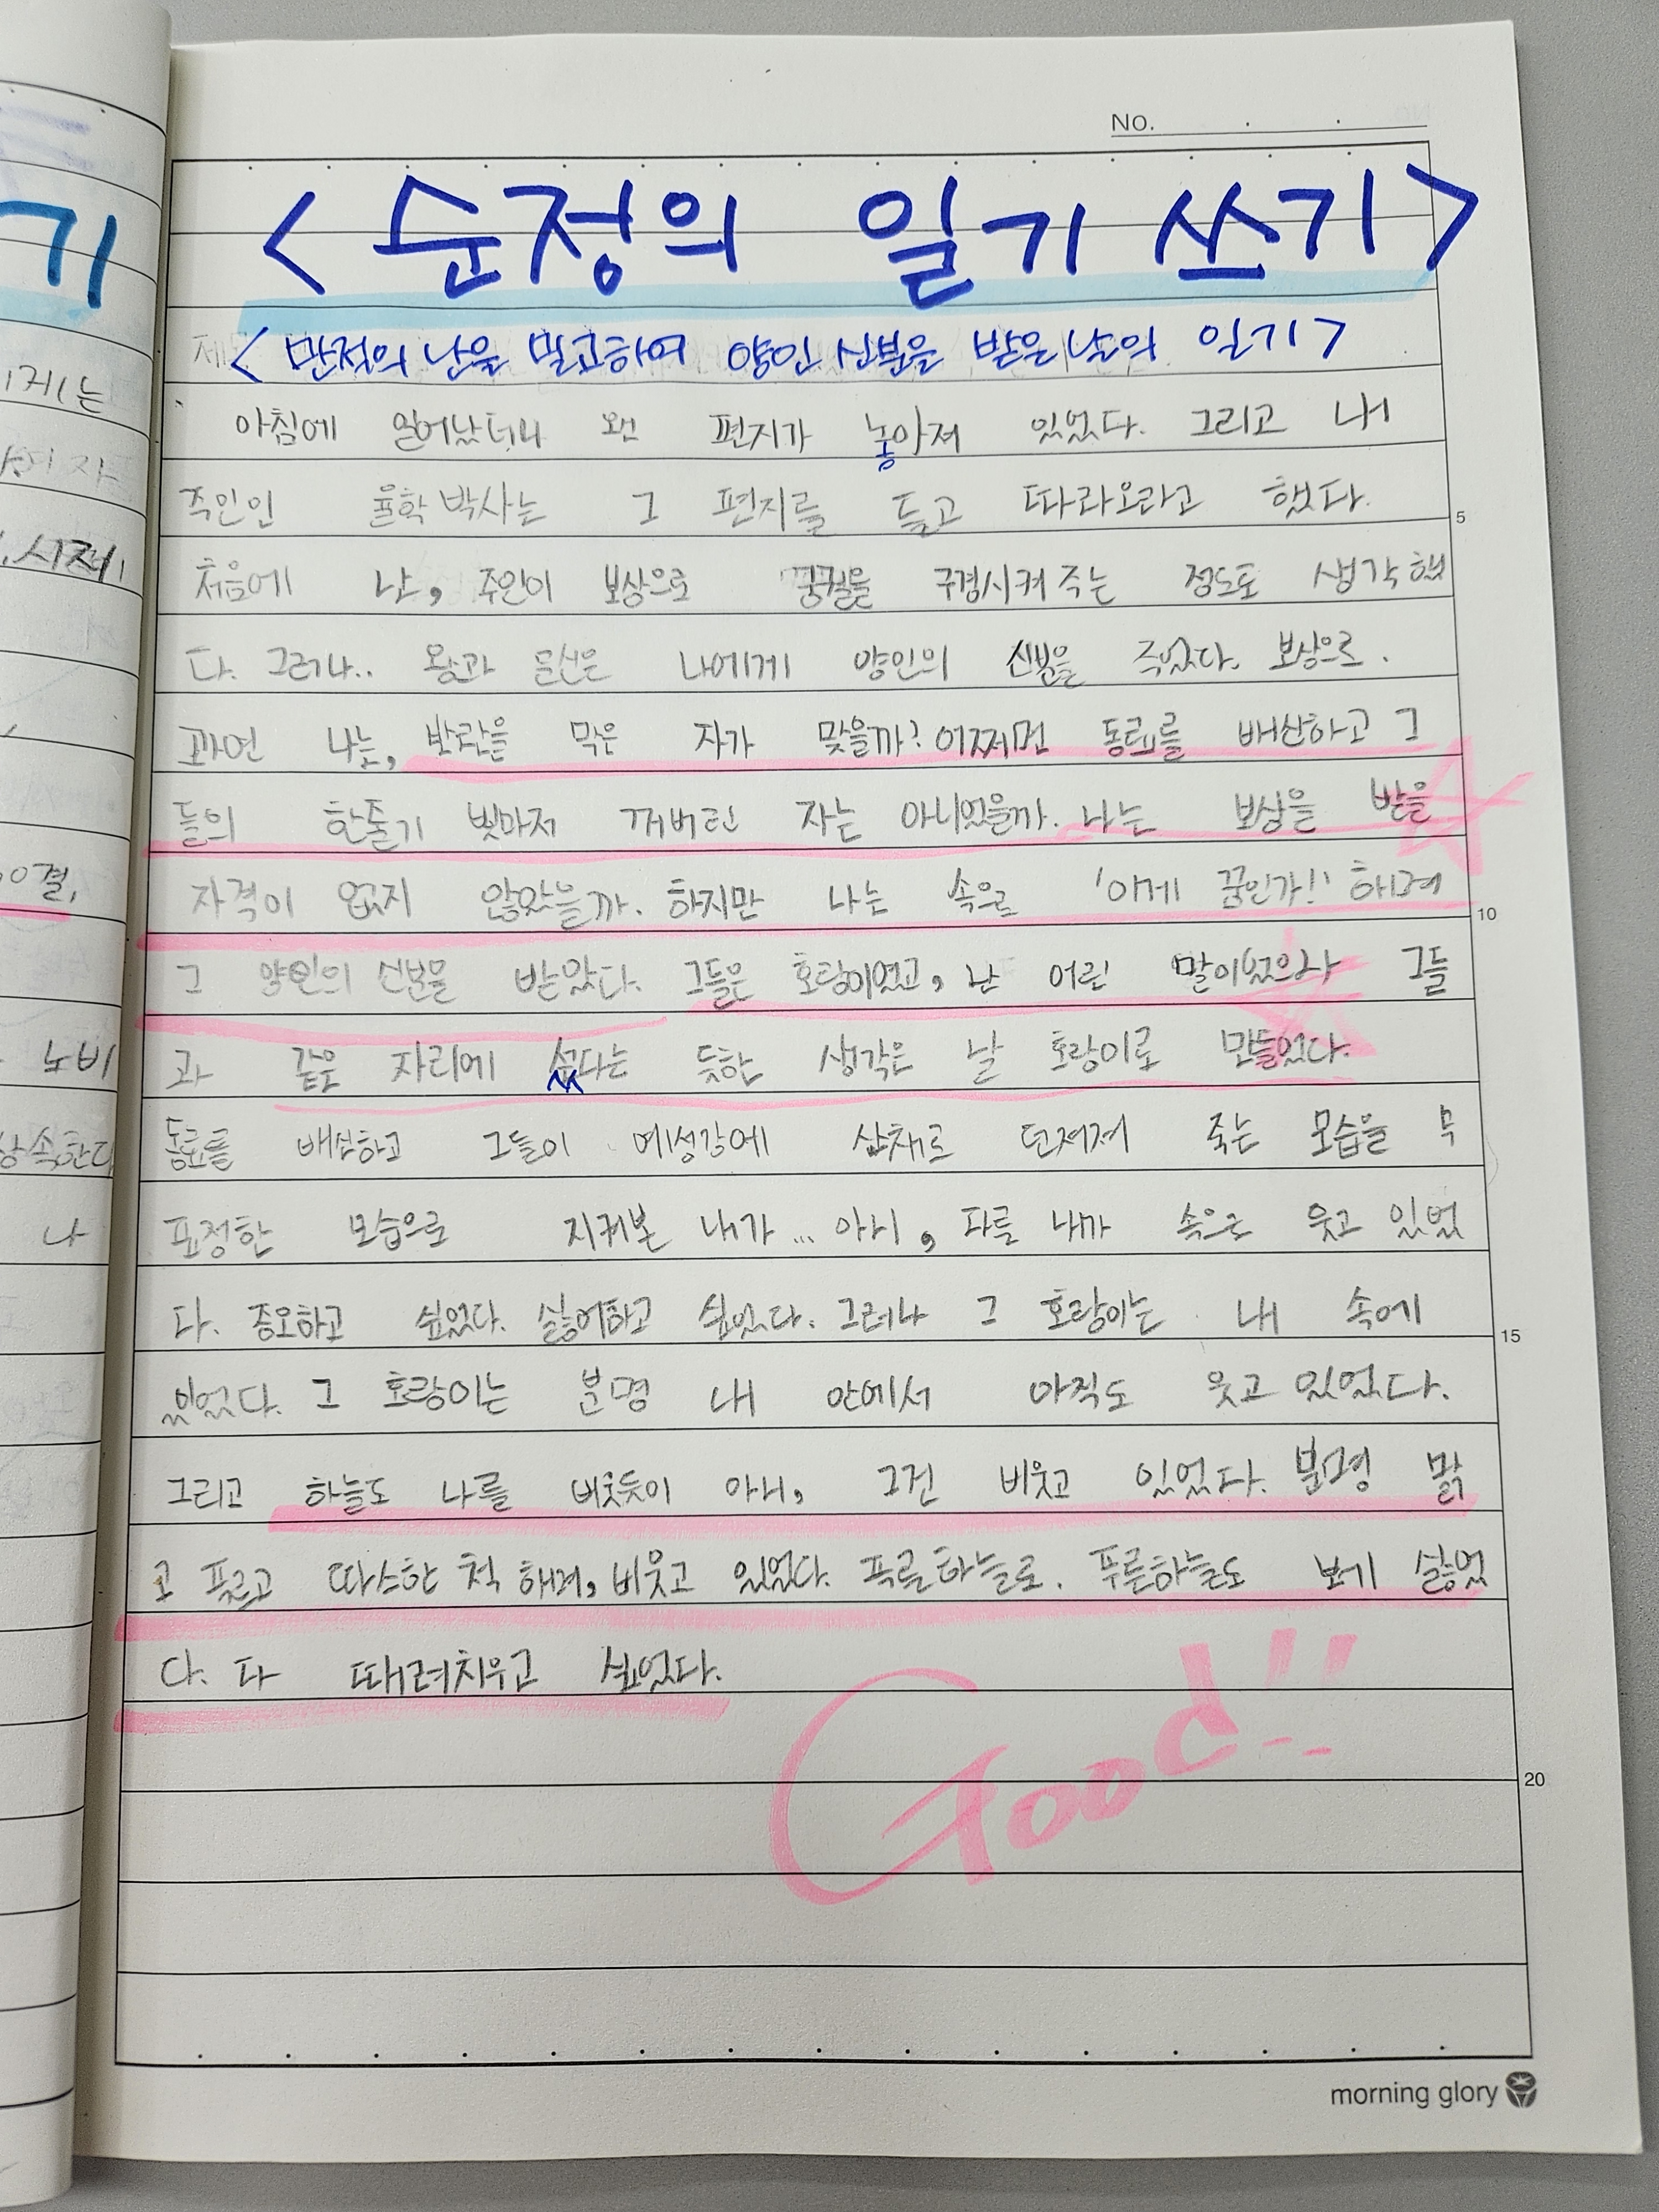 No.
<순정의 일기 쓰기>
<만적의 난을 밀고하여 양인 신분을 받은 날의 일기>
아침에 일어났더니 왠 편지가 놓아져 있었다. 그리고 내
주인인 율학박사는 그 편지를 들고 따라오라고 했다.
처음에 난, 주인이 보상으로 궁궐을 구경시켜 주는 정도로 생각했
다. 그러나.. 왕과 문신은 나에게 양인의 신분을 주었다. 보상으로.
과연 나는, 반란을 막은 자가 맞을까? 어쩌면 동료를 배신하고 그
들의 한줄기 빛마저 꺼버린 자는 아니었을까. 나는 보상을 받을
자격이 없지 않았을까. 하지만 나는 속으로 '이게 꿈인가!' 하며
그 양인의 신분을 받았다. 그들은 호랑이였고, 난 어린 말이었으나 그들
과 같은 자리에 섰다는 듯한 생각은 날 호랑이로 만들었다.
동료를 배신하고 그들이 예성강에 산채로 던져져 죽는 모습을 무
표정한 모습으로 지켜본 내가... 아니, 다들 나까 속으로 웃고 있었
다. 증오하고 싶었다. 싫어하고 싶었다. 그러나 그 호랑이는 내 속에
있었다. 그 호랑이는 분명 내 안에서 아직도 웃고 있었다.
그리고 하늘도 나를 비춋듯이 아니, 그건 비웃고 있었다. 분명 맑
고 푸르고 따스한 척 하며, 비웃고 있었다. 푸른하늘로. 푸른하늘도 보기 싫었
다. 다 때려치우고 싶었다.
Good!!
5
10
15
20
morning glory
기
노비
나